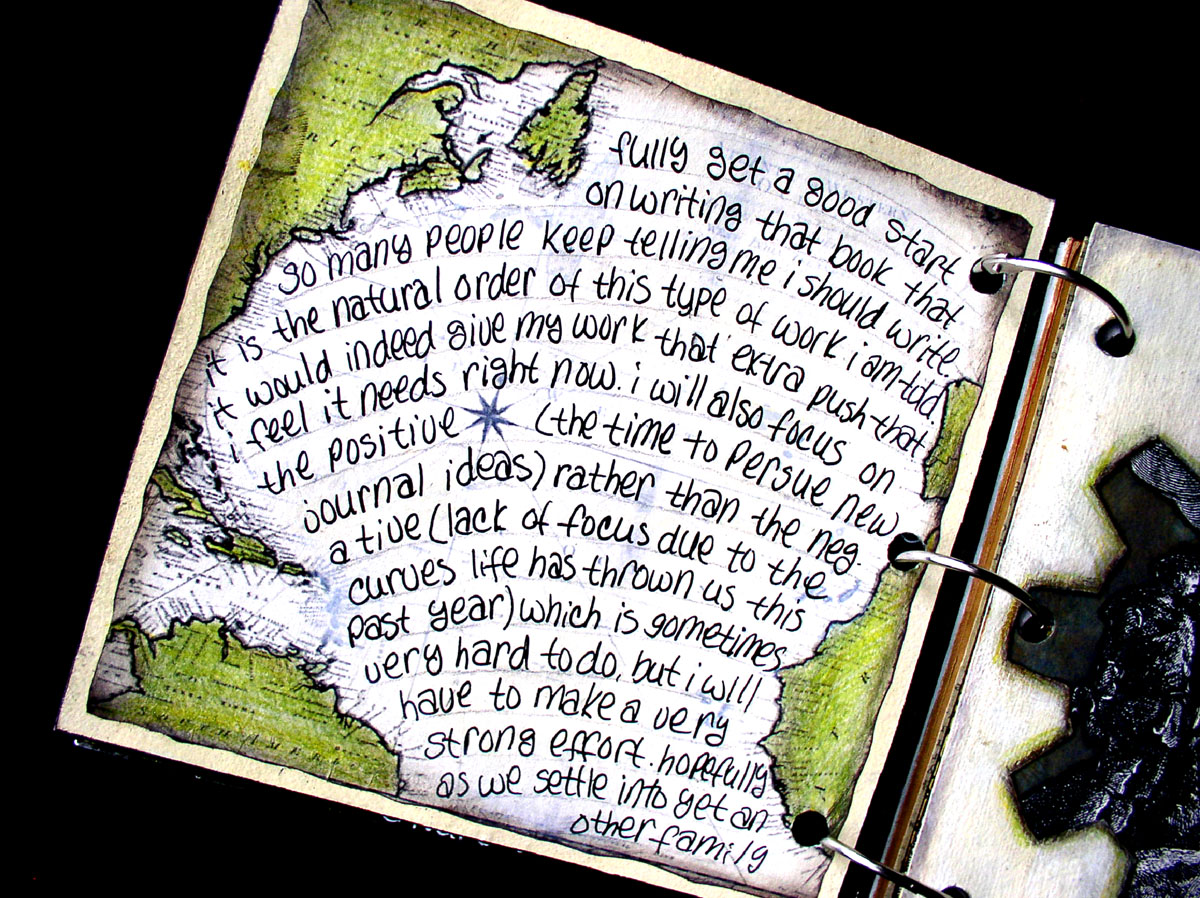 fully get a good start
on writing that book that
so many people keep telling me i should write.
it is the natural order of this type of work i am told.
it would indeed give my work that extra push that
i feel it needs right now. i will also focus on
the positive (the time to persue new
journal ideas) rather than the neg.
ative (lack of focus due to the
curves life has thrown us this
past year) which is sometimes
very hard to do, but i will
have to make a very
strong effort. hopefully
as we settle into yet an
other family